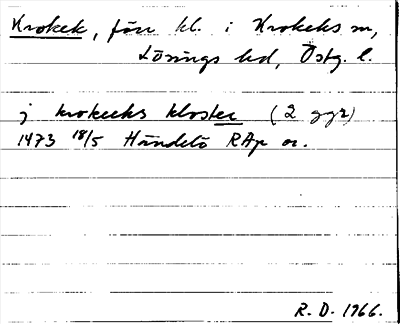 Krokek, förr kl. i Krokeks sn,
Lösings hd, Östg. l.
j krokeeks kloster (2 ggr)
1473 18/5 Händelö RAp or.
R. D. 1966.